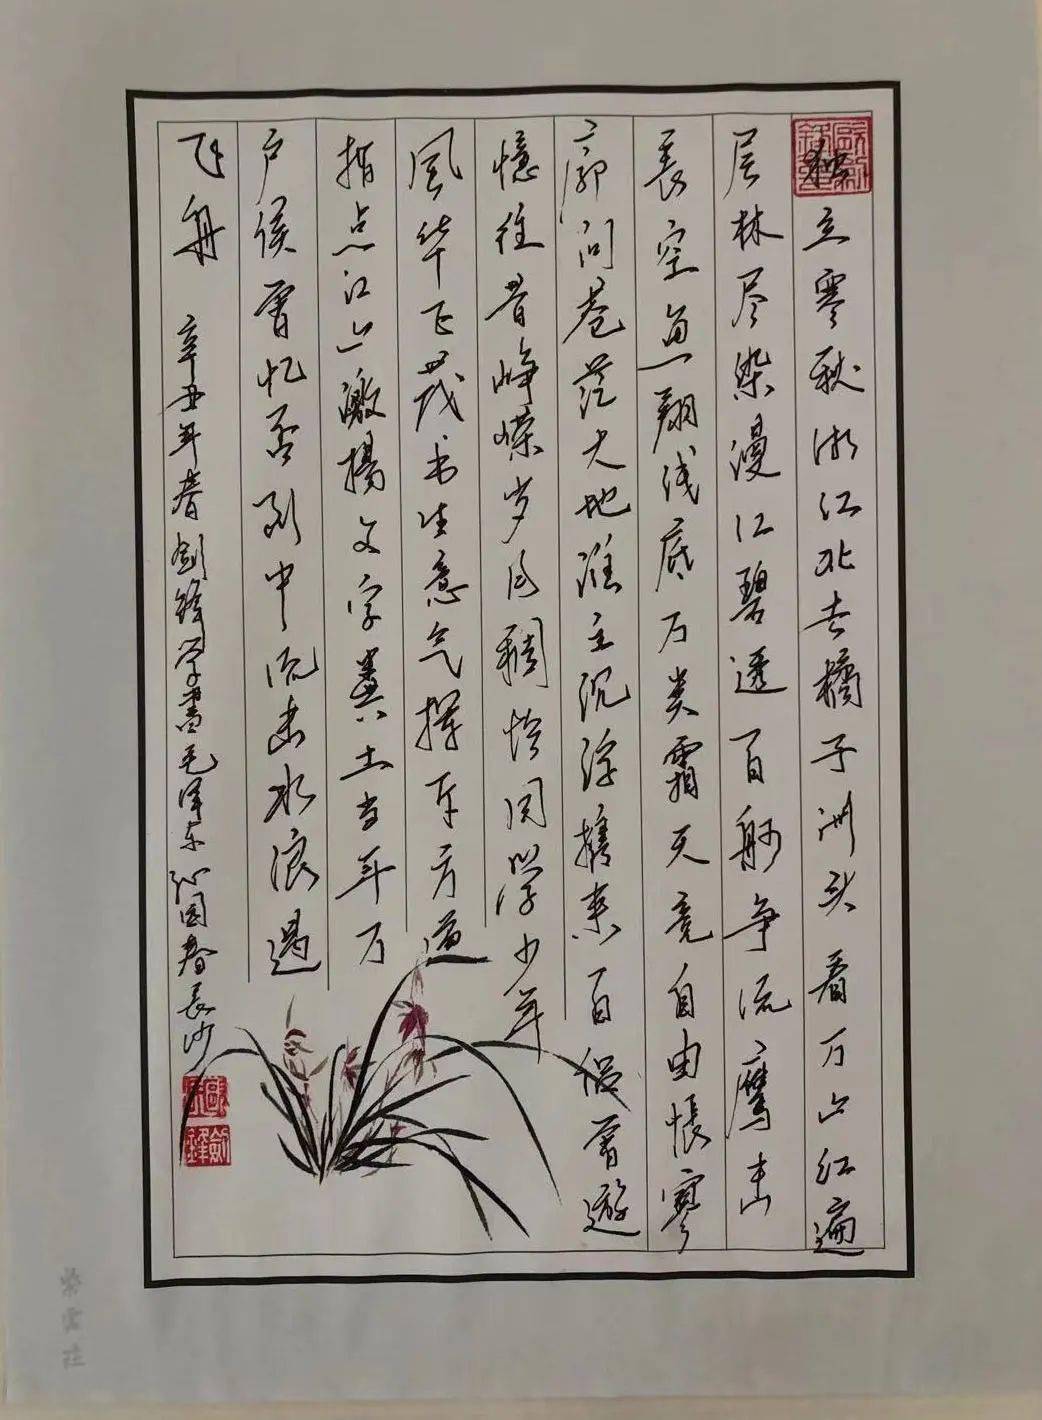 独立寒秋湘江北去橘子洲头看万山红遍
层林尽染漫江碧透百舸争流鹰击
長空鱼翔浅底万类霜天竞自由怅寥
廓问苍茫大地谁主沉浮携来百侣曾遊
憶往昔峥嵘岁月稠恰同学少年
风华正茂书生意气挥斥方遒
指点江山激揚文字粪土当年万
户侯曾忆否到中流击水浪遏
飞舟 辛丑年春剑锋学書毛泽东沁园春長沙